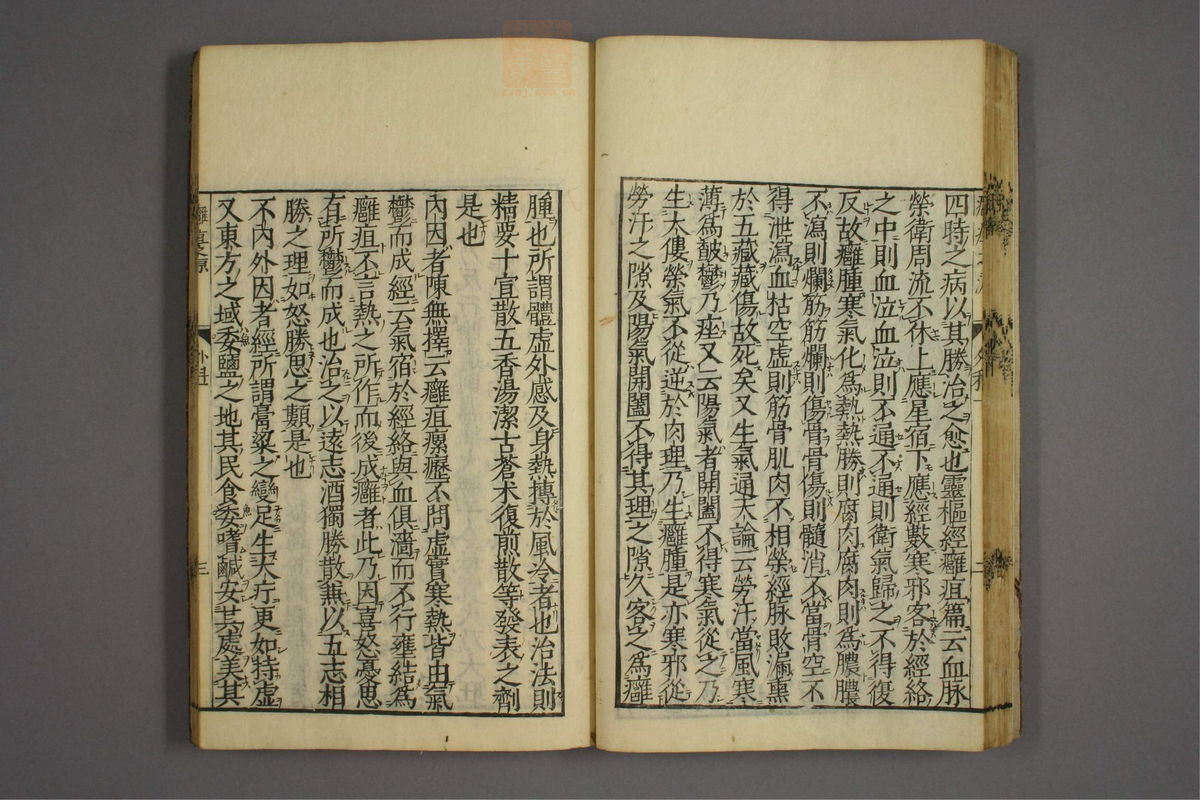 四時之病以其勝治之愈也靈樞經癰疽篇云血脉
榮衛周流不休上應星宿下應經數寒邪客於經絡
之中則血泣血泣則不通不通則衛氣歸之不得復
反故癰腫寒氣化爲熱熱勝則腐肉腐肉則爲膿膿
不瀉則爛筋筋爛則傷骨骨傷則髓消不當骨空不
得泄瀉血枯空虛則筋骨肌肉不相榮經脉敗漏熏
於五藏藏傷故死矣又生氣通天論云勞汗當風寒
薄爲皶鬱乃痤又云陽氣者開闔不得寒氣從之乃
生大僂榮氣不從逆於肉理乃生癰腫是亦寒邪從
勞汗之隙及陽氣開闔不得其理之隙久客之爲癰
腫也所謂體虛外感及身熱搏於風冷者也治法則
精要十宣散五香湯潔古蒼朮復煎散等發表之劑
是也
內因者陳無擇云癰疽瘰癧不問虛實寒熱皆由氣
鬱而成經云氣宿於經絡與血俱濇而不行壅結爲
癰疽不言熱之所作而後成癰者此乃因喜怒憂思
有所鬱而成也治之以遠志酒獨勝散兼以五志相
勝之理如怒勝思之類是也
不內外因者經所謂膏粱之變足生大疔更如持虛
又東方之域委鹽之地其民食委嗜鹹安其處美其
三